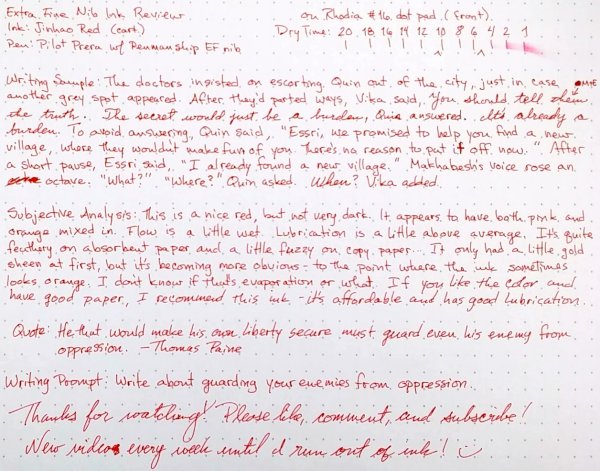 Extra Fine Nib Ink Review
on Rhodia #16 dot pad (front).
Ink: Jinhao Red (cart.)
Dry Time: 20 18 16 14 12 10 8 6 4 2 1
Pen: Pilot Prera w/ Penmanship EF nib
Writing Sample: The doctors insisted on escorting Quin out of the city, just in case
another grey spot appeared. After they'd parted ways, Vika said, You should tell them
the truth. The secret would just be a burden, Quin answered. It's already a
burden. To avoid answering, Quin said, "Essri, we promised to help you find a new
village, where they wouldn't make fun of you. There's no reason to put it off now." After
a short pause, Essri said, "I already found a new village." Makhabesh's voice rose an
octave. "What?" "Where?" Quin asked. When? Vika added.
Subjective Analysis: This is a nice red, but not very dark. It appears to have both pink and
orange mixed in. Flow is a little wet. Lubrication is a little above average. It's quite
feathery on absorbent paper and a little fuzzy on copy paper... It only had a little gold
sheen at first, but it's becoming more obvious - to the point where the ink sometimes
looks orange. I don't know if that's evaporation or what. If you like the color and
have good paper, I recommend this ink - it's affordable and has good lubrication.
Quote: He that would make his own liberty secure must guard even his enemy from
oppression. -Thomas Paine
Writing Prompt: Write about guarding your enemies from oppression.
Thanks for watching! Please like, comment, and subscribe!
New videos every week until I run out of ink!